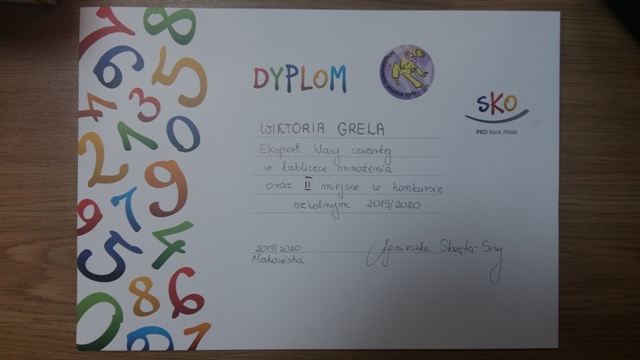 DYPLOM
SKO
PKO Bank Polski
WIKTORIA GRELA
Ekspert klasy czwartej
w tabliczce mnożenia
oraz II miejsce w konkursie
szkolnym 2019/2020
2019/2020
Makowiska
Agnieszka